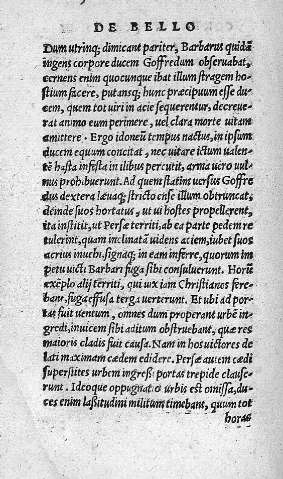 DE BELLO
Dum utrinq; dimicant pariter, Barbarus quidã
ingens corpore ducem Goffredum obseruabat,
cernens enim quocunque ibat illum stragem ho
stium facere, putansq; hunc præcipuum esse du
cem, quem tot uiri in acie sequerentur, decreue-
rat animo eum perimere, uel clara morte uitam
amittere. Ergo idoneũ tempus nactus, in ipsum
ducem equum concitat, nec uitare ictum ualen-
tẽ hasta infesta in ilibus percutit, arma uero uul
nus prohibuerunt. Ad quem statim uersus Goffre
dus dextera læuaq; stricto ense illum obtruncat,
deinde suos hortatus, ut ui hostes propellerent,
ita institit, ut Persæ territi, ab ea parte pedem re
tulerint, quam inclinatã uidens aciem, iubet suos
acrius inuehi, signaq; in eam inferre, quorum im
petu uicti Barbari fuga sibi consuluerunt. Horũ
exẽplo alij territi, qui uix iam Christianos fere-
bant, fuga effusa terga uerterunt. Et ubi ad por-
tas fuit uentum, omnes dum properant urbẽ in-
gredi, inuicem sibi aditum obstruebant, quæ res
maioris cladis fuit causa. Nam in hos uictores de
lati maximam cædem edidere. Persæ autem cædi
superstites urbem ingressi portas trepide clause-
runt. Ideoque oppugnatio urbis est omissa, du-
ces enim lassitudini militum timebant, quum tot
horas